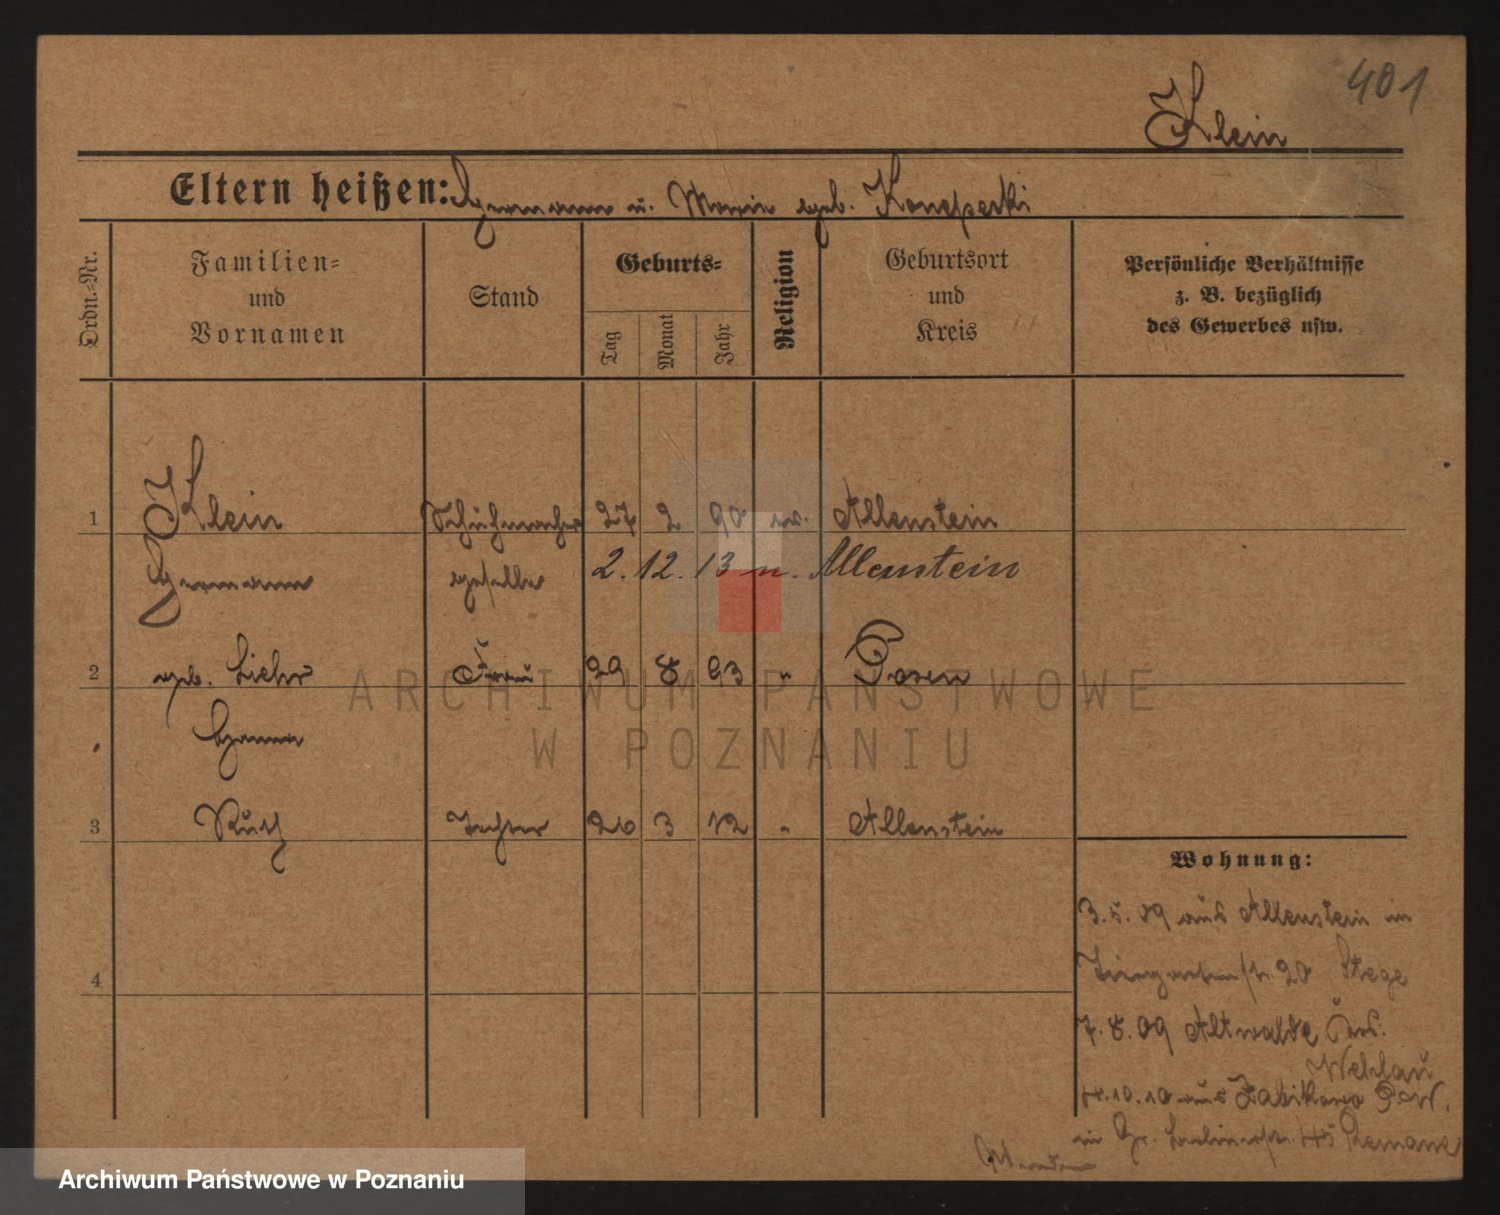 401
Klein
Eltern heißen: Hermann u. Marie geb. Konopatzki
Ordn.-Nr.
Familien-
und
Vornamen
Stand
Geburts-
Tag
Monat
Jahr
Religion
Geburtsort
und
Kreis
Persönliche Verhältnisse
z. B. bezüglich
des Gewerbes usw.
1 Klein Schuhmacher 27 2 90 ev. Allenstein
Hermann geselle 2. 12. 13 n. Allenstein
2 geb. Liehr Frau 29 8 93 " Posen
3 Ruth Tochter 20 3 12 " Allenstein
Wohnung:
3. 5. 09 aus Allenstein in
Tiergartenstr. 20 Stege
7. 8. 09 Altwalde Krs.
Wehlau
10. 10 aus Zabikowo P.W.
in Gr. Berlinerstr. 45
ARCHIWUM PAŃSTWOWE
W POZNANIU
4
Archiwum Państwowe w Poznaniu